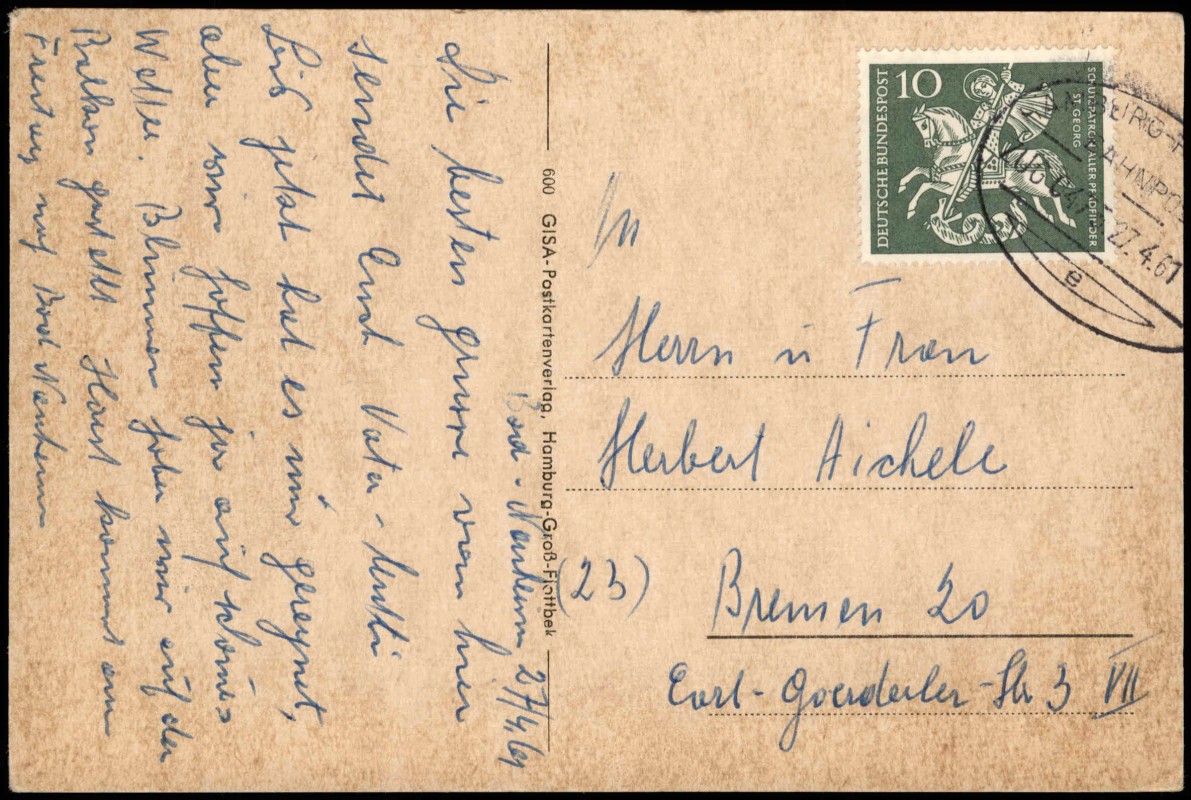 Bad-Nauheim 27/4.61
Die besten grüsse von hier
sendet Euch Vater - Mutti
bis jetzt hat es nur geregnet,
aber wir hoffen ja auf schönes
Wetter. Blumen haben wir auf der
Balkon gestellt Horst kommt am
Freitag nach Bad Nauheim
600 GISA-Postkartenverlag, Hamburg-Groß-Flottbek
10
DEUTSCHE BUNDESPOST
SCHUTZPATRON ALLER PFADFINDER
ST. GEORG
BAHNPOST
27.4.61
e
An
Herrn u Frau
Herbert Aichele
(23) Bremen 20
Carl-Goerdeler-Str 3 VII